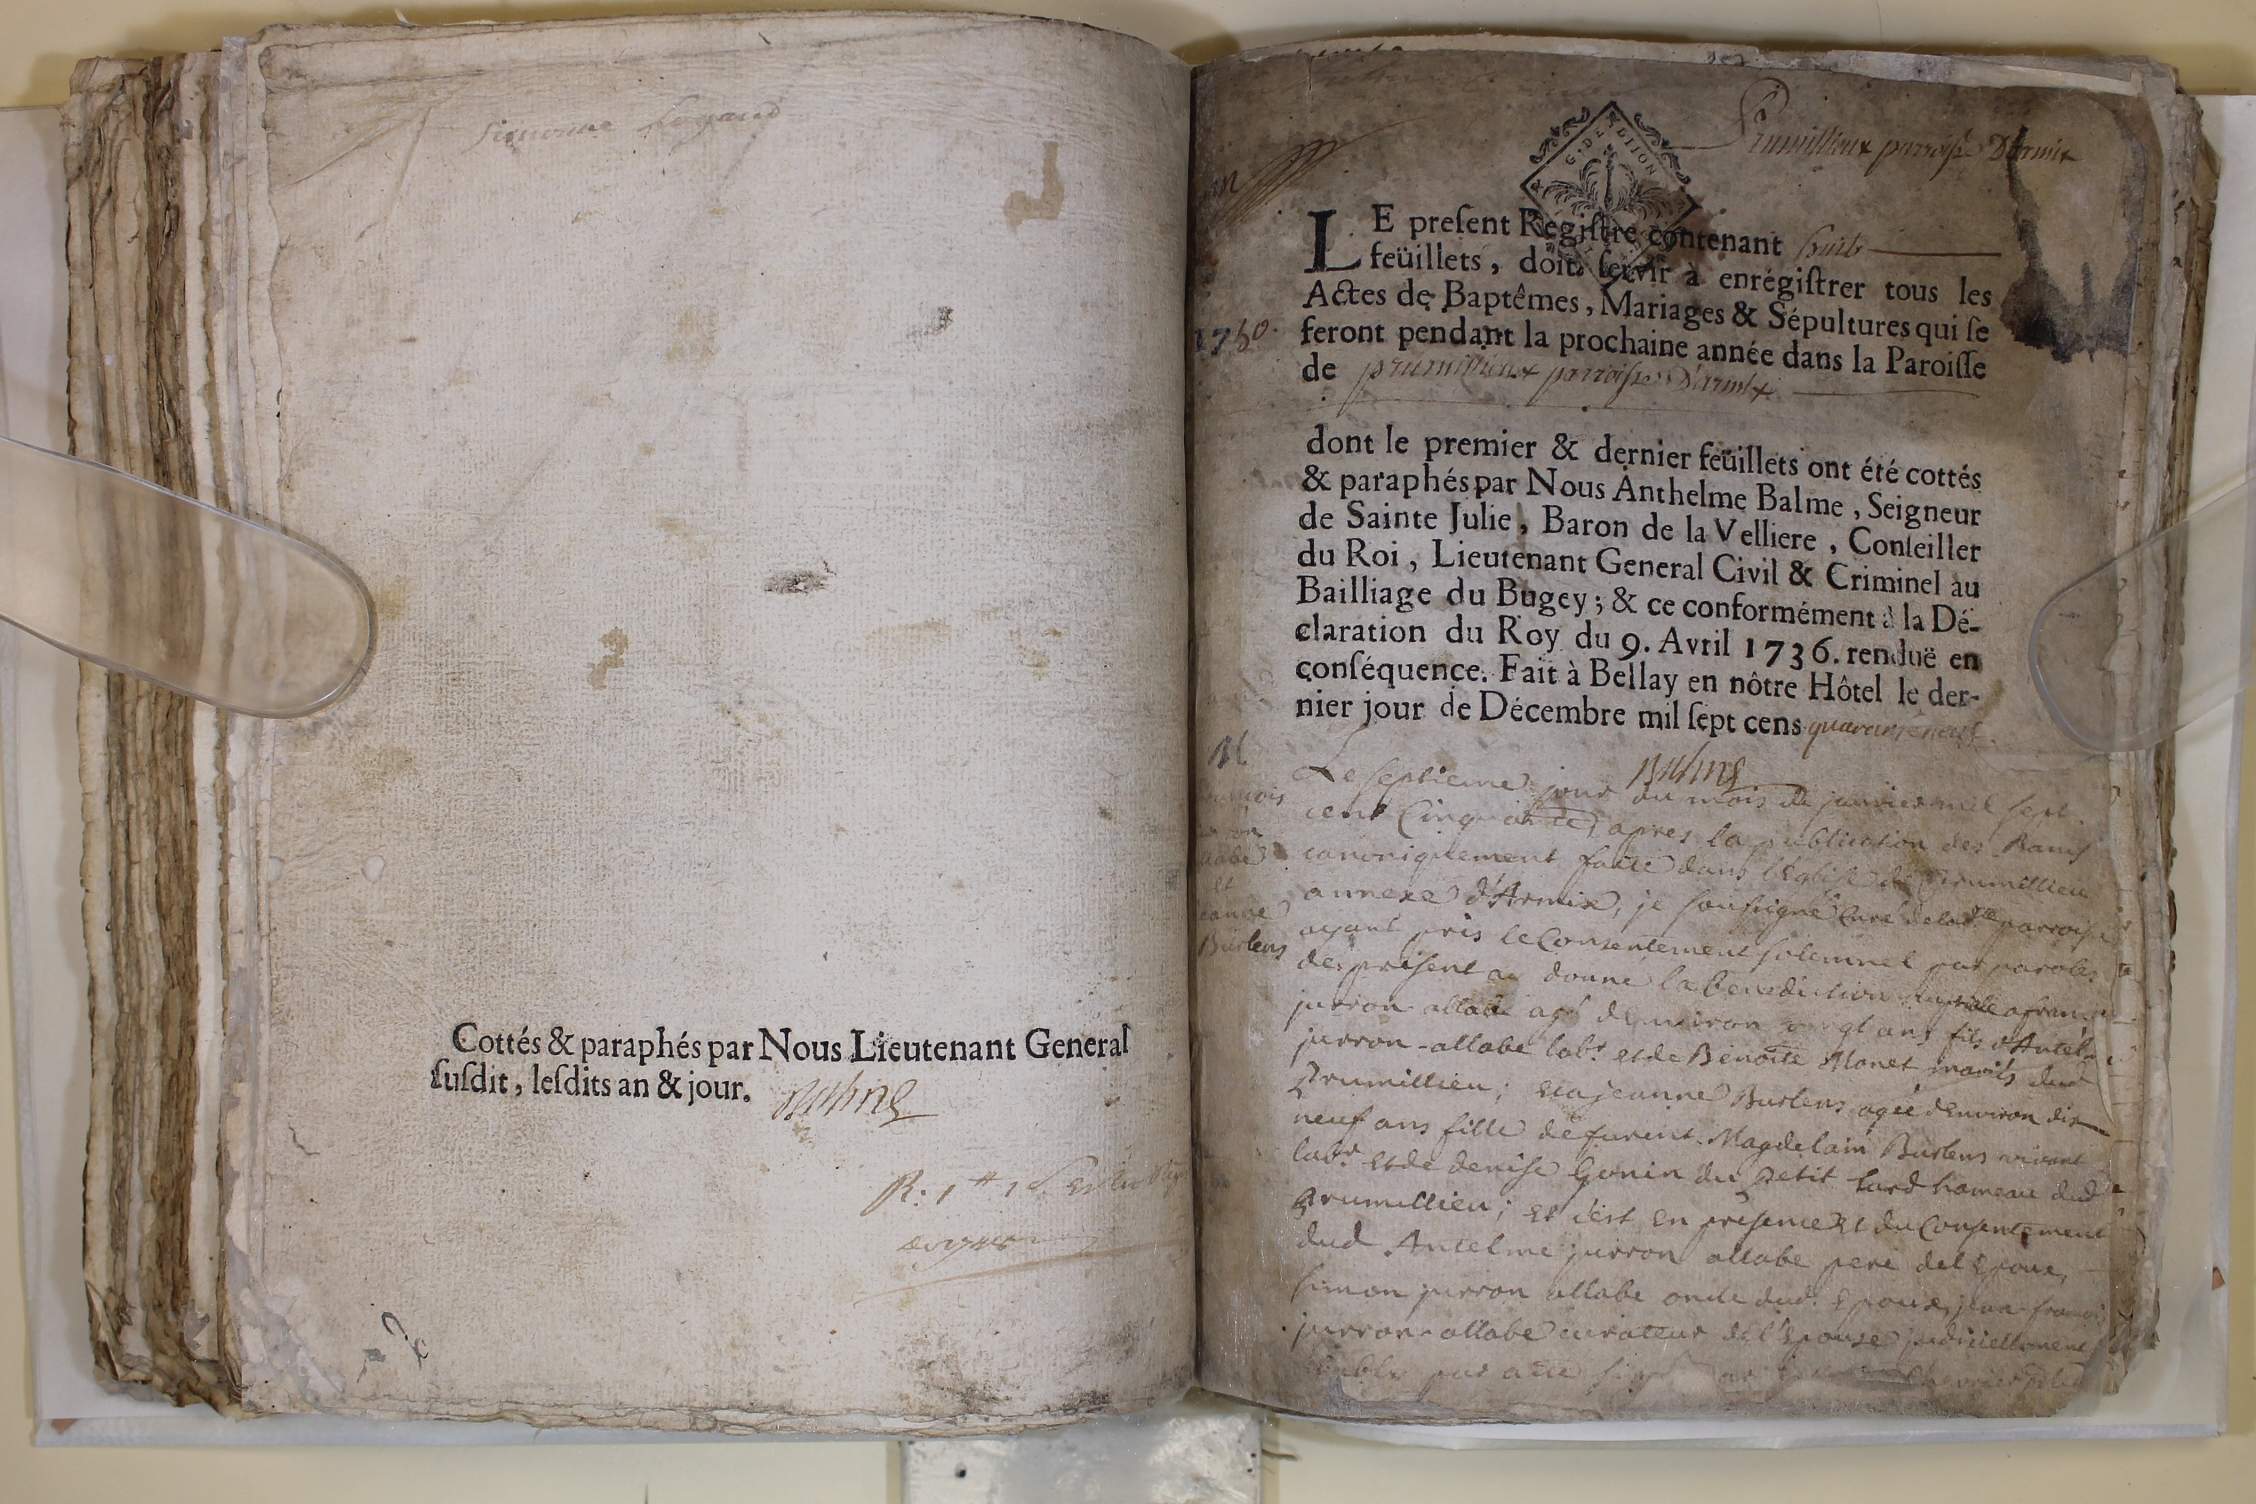 Cottés & paraphés par Nous Lieutenant General
ſuſdit, leſdits an & jour.
Balme
Prumillieux parroisse D'armix
G. DE DIJON
LE preſent Regiſtre contenant huit
feüillets, doit ſervir à enrégiſtrer tous les
Actes de Baptêmes, Mariages & Sépultures qui ſe
1750.
feront pendant la prochaine année dans la Paroiſſe
de prumillieux parroisse D'armix
dont le premier & dernier feüillets ont été cottés
& paraphés par Nous Anthelme Balme, Seigneur
de Sainte Julie, Baron de la Velliere, Conſeiller
du Roi, Lieutenant General Civil & Criminel au
Bailliage du Bugey; & ce conformément à la Dé-
claration du Roy du 9. Avril 1736. renduë en
conſéquence. Fait à Bellay en nôtre Hôtel le der-
nier jour de Décembre mil ſept cens quaranteneuf.
Balme
M
et
Burlens
Le septieme jour du mois de janvier mil sept
cent Cinquante, apres la publication des Bans
canoniquement faite dans l'Eglise de Prumillieu
annexe d'Armix, je soussigné Curé de lad.te parroisse
ayant pris le Consentement solemnel par paroles
de present ay donné la benediction nuptiale a
jurron allabe agé d'environ vingt ans fils d'Antel
jurron-allabe lab.r et de Benoite Monet mariés dud
Prumillieu; et a jeanne Burlens agée d'Environ dix
neuf ans fille de furent Magdelain Burlens vivant
lab.r et de denise Gonin du Petit hameau dud
Prumillieu; et c'est En presence et du Consentement
dud Antelme jurron allabe pere del'Epoux,
simon jurron allabe oncle dud. Epoux, jean francois
jurron-allabe curateur de l'Epouse judiciellement
par acte